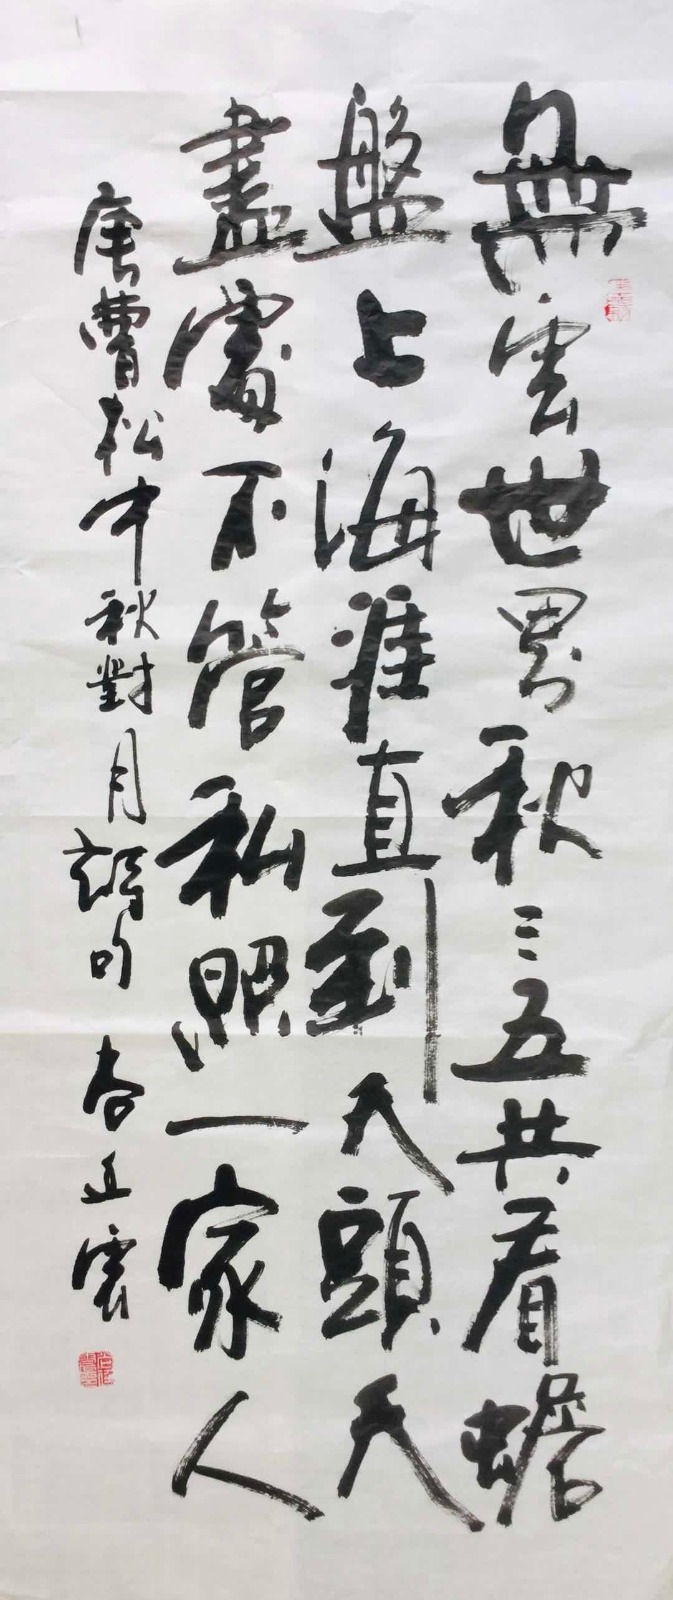 無雲世界秋三五共看蟾
盤上海涯直到天頭天
盡處不管私照一家人
唐曹松中秋對月詩句 尚正雲